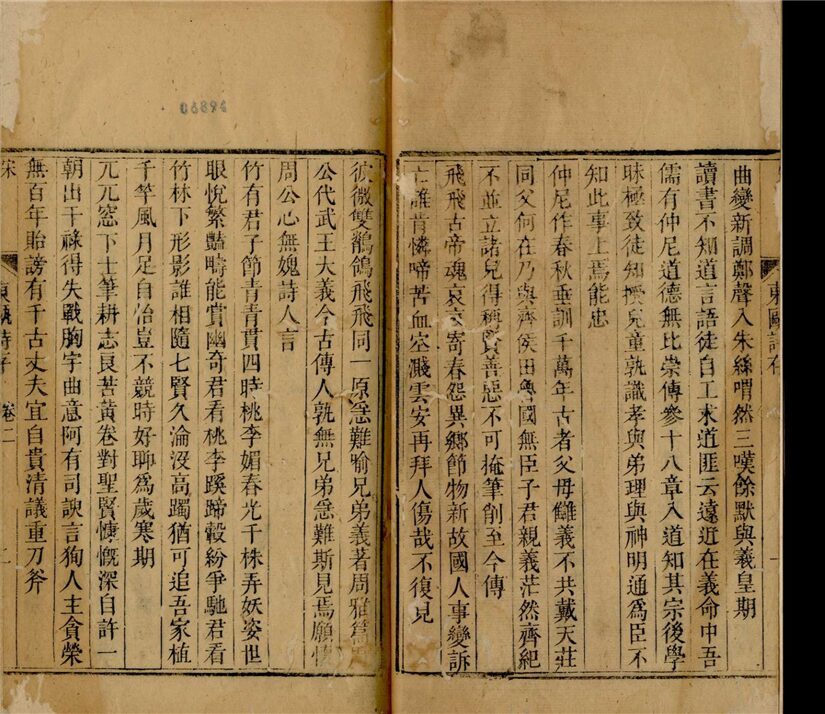 曲變新調鄭聲入朱絲喟然三嘆餘默與羲皇期
讀書不知道言語徒自工求道匪云遠近在義命中吾
儒有仲尼道德無比崇傳參十八章入道知其宗後學
昧極致徒知授兒童孰識孝與弟理與神明通爲臣不
知此事上焉能忠
仲尼作春秋垂訓千萬年古者父母讎義不共戴天莊
同父何在乃與齊侯田魯國無臣子君親義茫然齊紀
不並立諸兒得稱賢善惡不可掩筆削至今傳
飛飛古帝魂哀哀寄春怨異鄉節物新故國人事變訴
亡誰肯憐啼苦血空濺雲安再拜人傷哉不復見
06894
彼微雙鶺鴒飛飛同一原急難喻兄弟義著周雅篇
公代武王大義今古傳人孰無兄弟急難斯見焉願
周公心無媿詩人言
竹有君子節青青貫四時桃李媚春光千株弄妖姿世
眼悅繁豔疇能賞幽奇君看桃李蹊蹄轂紛爭馳君看
竹林下形影誰相隨七賢久淪沒高躅猶可追吾家植
千竿風月足自怡豈不競時好聊爲歲寒期
兀兀窓下士筆耕志良苦黃卷對聖賢慷慨深自許一
朝出干祿得失戰胸宇曲意阿有司諛言狥人主貪榮
無百年貽謗有千古丈夫宜自貴清議重刀斧
宋 東甌詩存 卷二 二